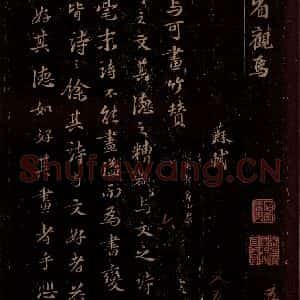 省觀焉
蘇軾
與可畫竹贊
之文其德之糟粕與可之詩
毫末詩不能盡溢而為書變
皆詩之餘其詩與文好者益
好其德如好其畫者乎悲
Shufawang.CN